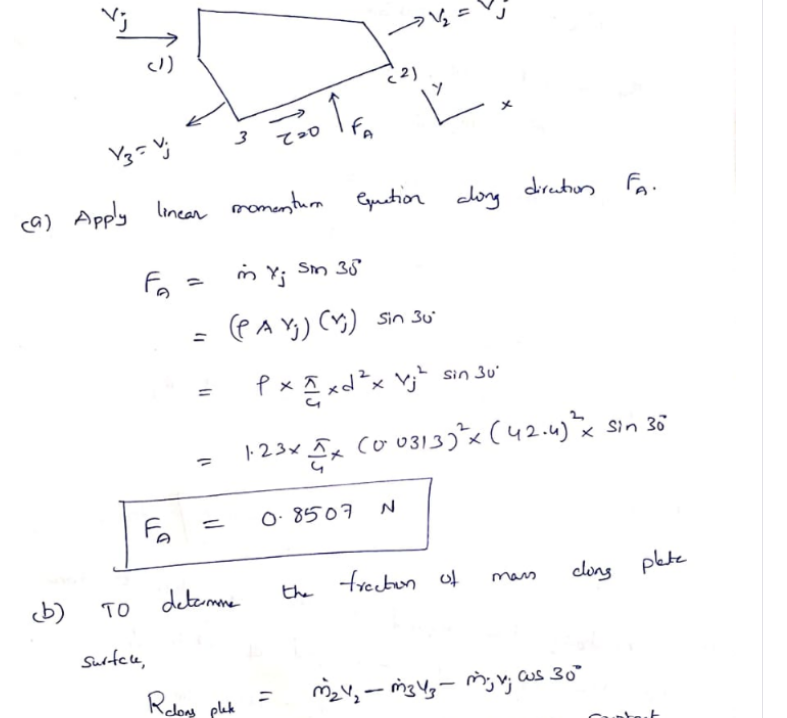 Vj
V2 = Vj
(1)
(2)
y
x
V3 = Vj
3
τ=0
FA
(a) Apply linear momentum Equation along direction FA.
FA = ṁ Vj Sin 30°
= (ρ A Vj) (Vj) Sin 30°
= ρ × π/4 × d² × Vj² sin 30°
= 1.23 × π/4 × (0.0313)² × (42.4)² × Sin 30°
FA = 0.8507 N
(b) TO determine the fraction of mass along plate
Surface,
Ralong plate = ṁ2V2 – ṁ3V3 – ṁjVj cos 30°